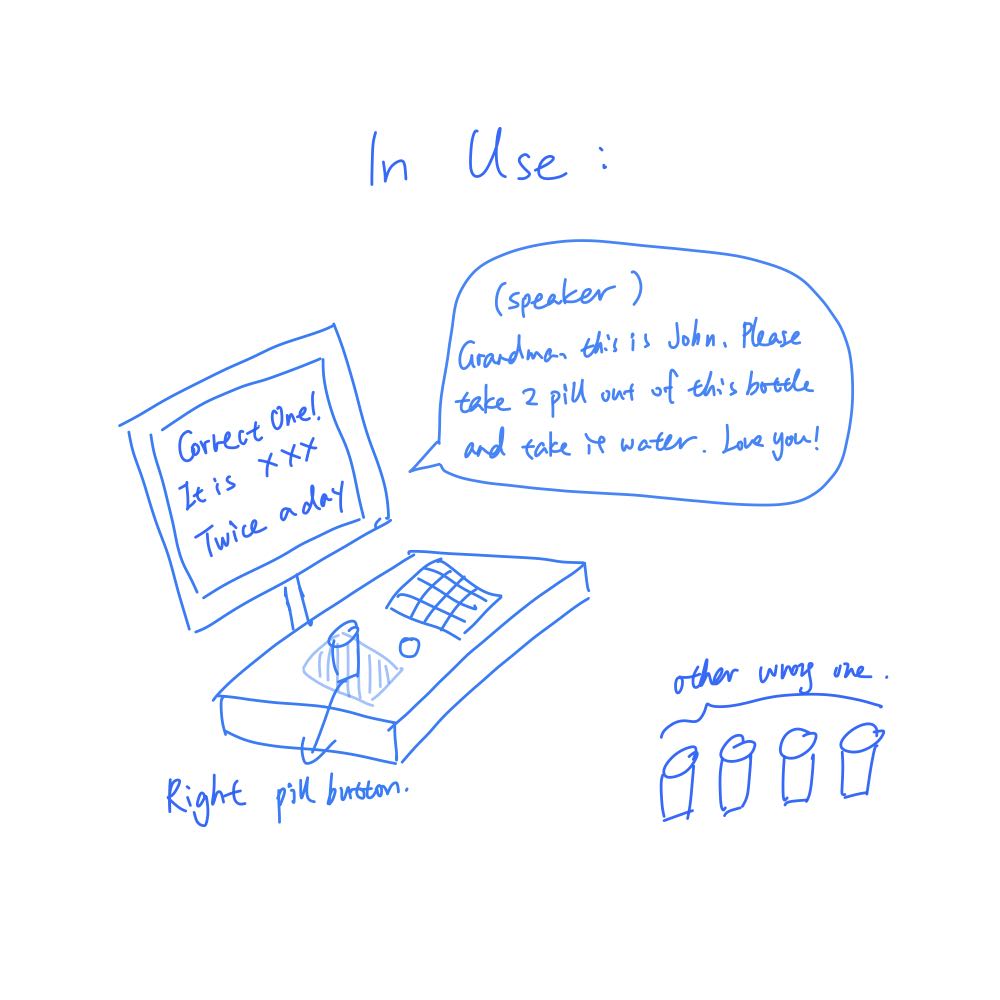 In Use :
(speaker)
Grandma, this is John. Please
take 2 pill out of this bottle
and take it water. Love you!
Correct One!
It is XXX
Twice a day
other wrong one.
Right pill button.